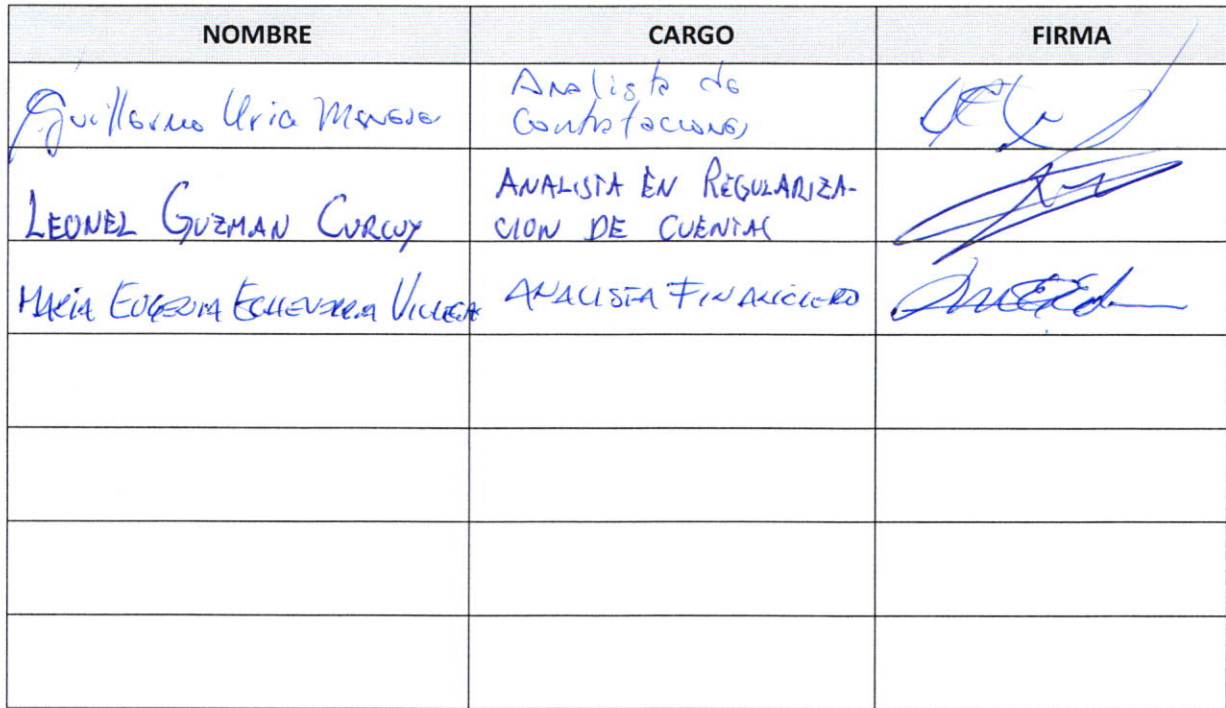 NOMBRE CARGO FIRMA
Guillermo Uria Analista de
Contrataciones
LEONEL GUZMAN CURCUY ANALISTA EN REGULARIZA-
CION DE CUENTAS
MARÍA EUGENIA ECHEVERRIA VILLEGAS ANALISTA FINANCIERO